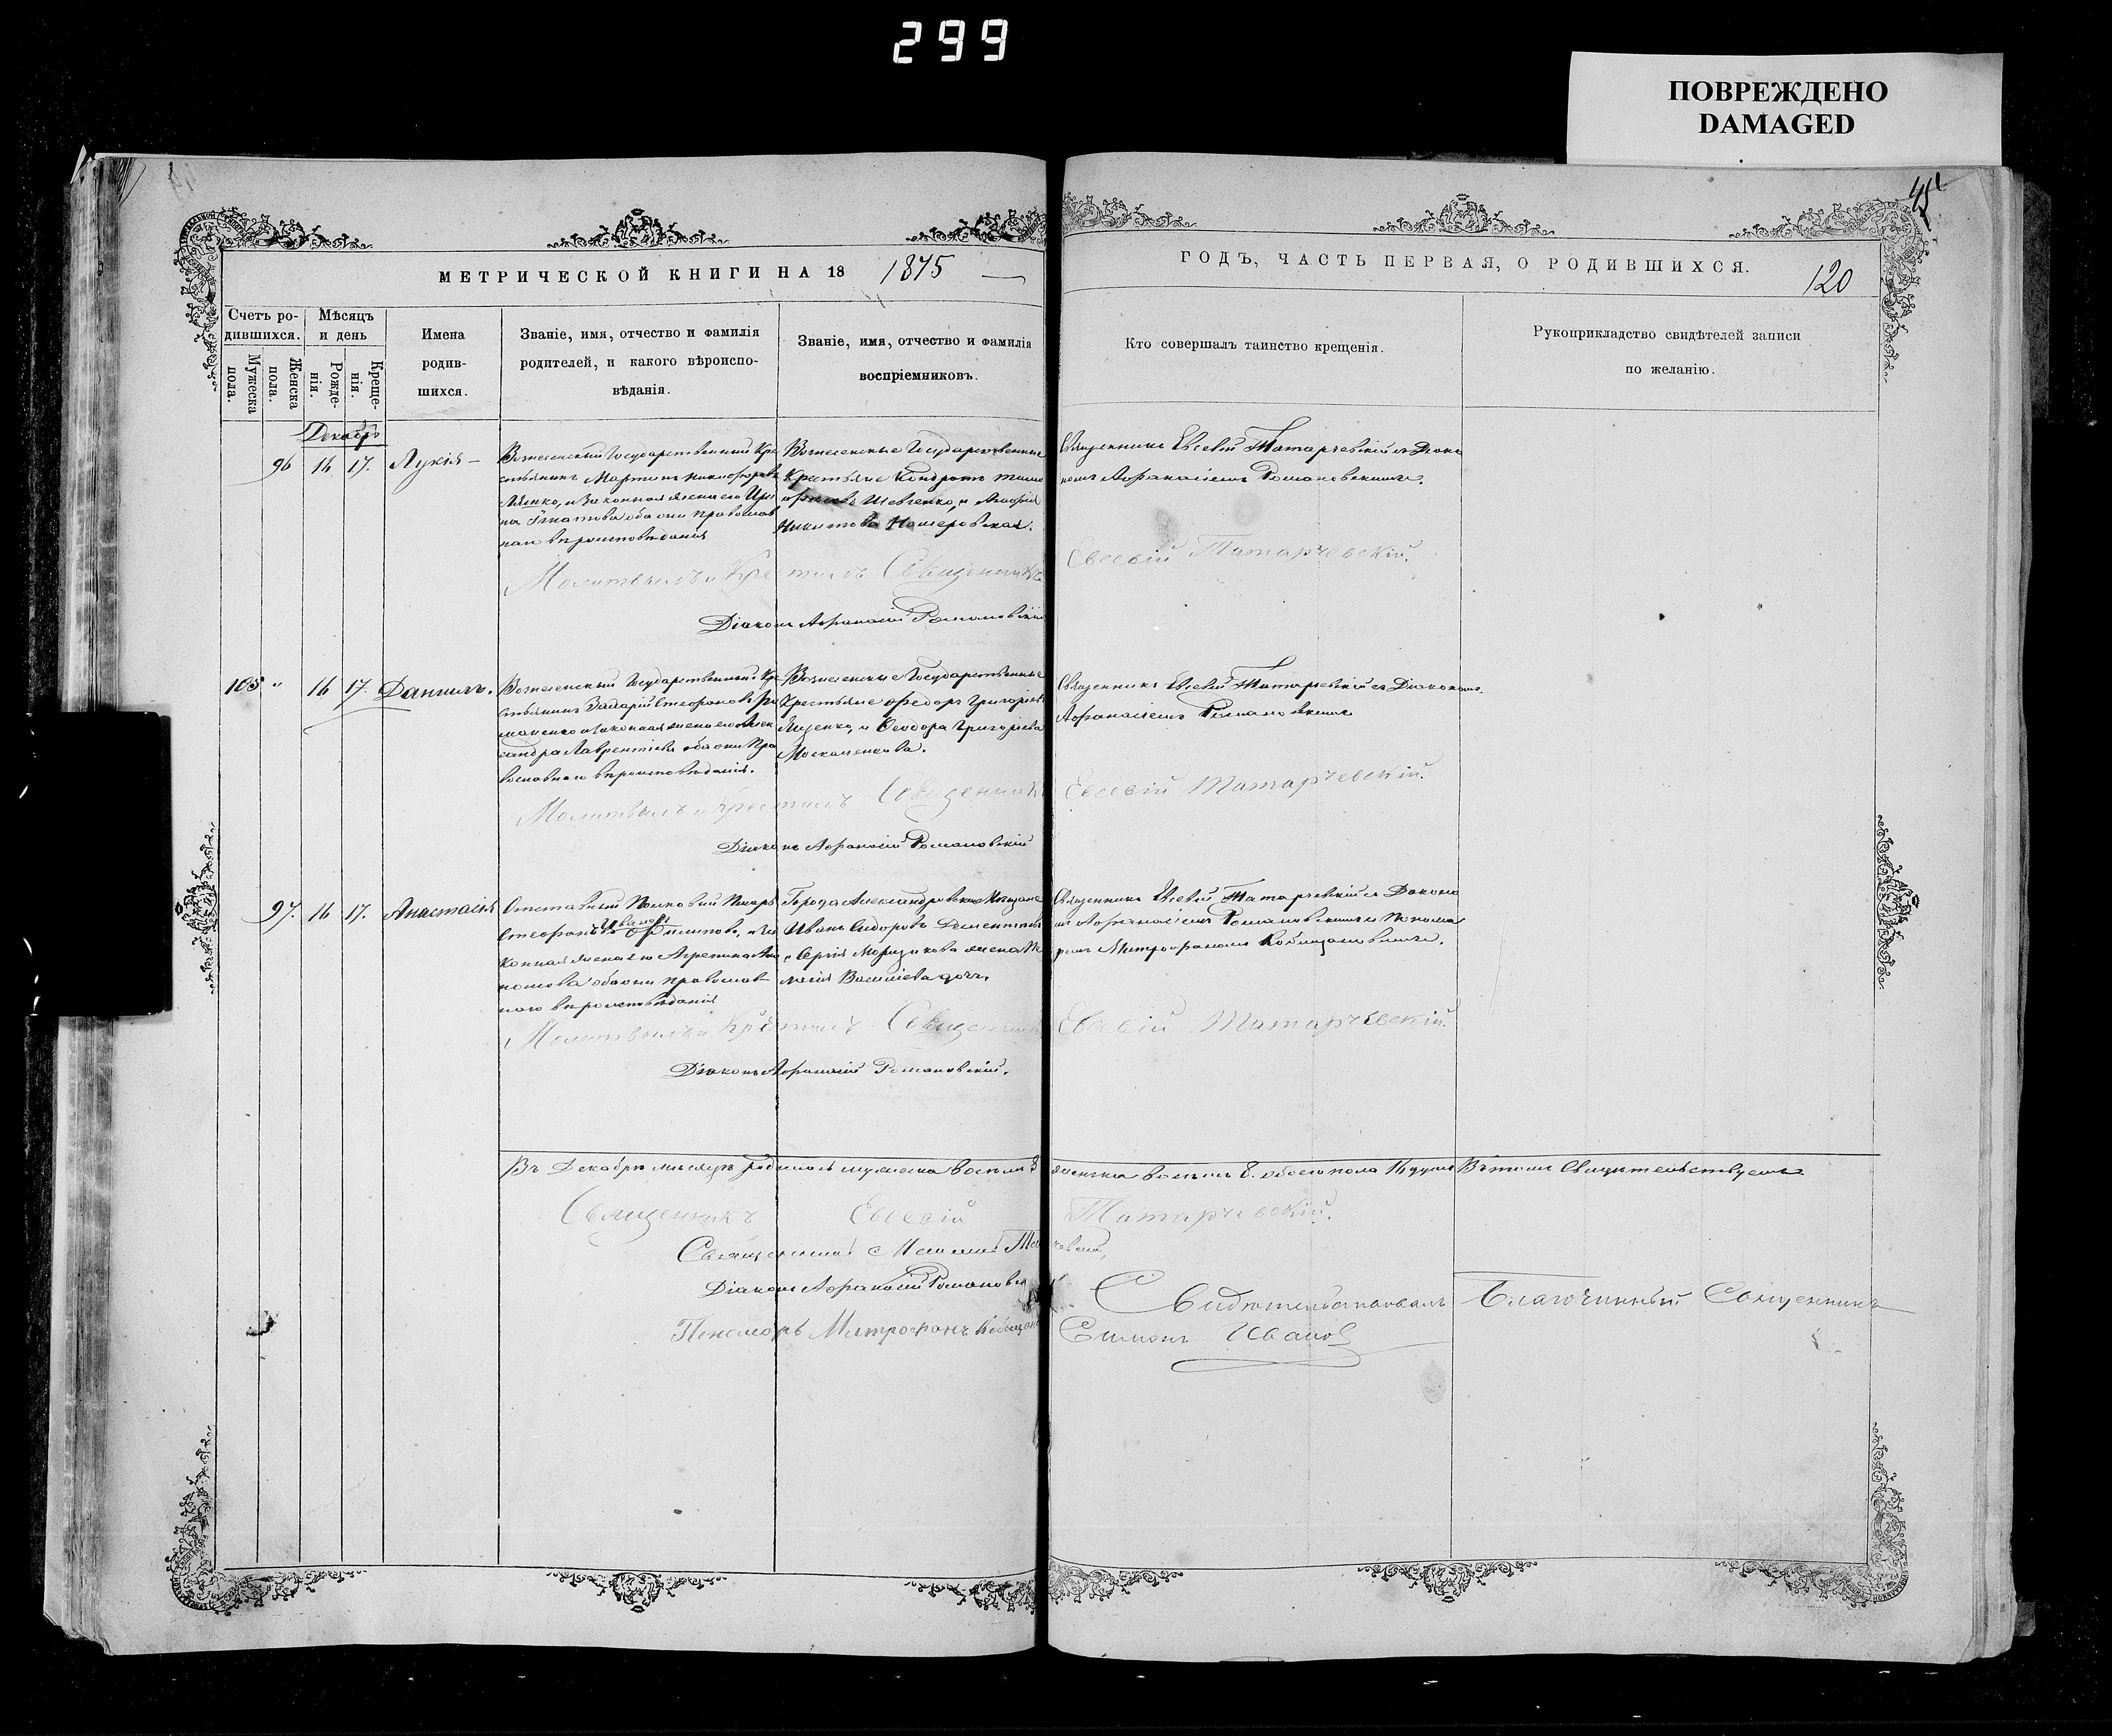 299
ПОВРЕЖДЕНО
DAMAGED
МЕТРИЧЕСКОЙ КНИГИ НА 18 1875
ГОДЪ, ЧАСТЬ ПЕРВАЯ, О РОДИВШИХСЯ.
120
Счетъ ро-
дившихся.
Мужеска
пола.
Женска
пола.
Мѣсяцъ
и день
Рожде-
нія.
Креще-
нія.
Имена
родив-
шихся.
Званіе, имя, отчество и фамилія
родителей, и какого вѣроиспо-
вѣданія.
Званіе, имя, отчество и фамилія
воспріемниковъ.
Кто совершалъ таинство крещенія.
Рукоприкладство свидѣтелей записи
по желанію.
Декабрь
96 16 17. Лукія
Вознесенскій Государственный Кре
стьянинъ Мартинъ Никифоровъ
и законная жена его Ири
на Игнатова оба они православ
наго вѣроисповѣданія
Вознесенскіе Государственные
Крестьяне Кондратъ Тимо
феевъ Шевченко, и
Никитова
Священникъ Евсевій Татарчевскій съ Діако
номъ Афанасіемъ Романовскимъ.
Молитвилъ и Крестилъ Священникъ Евсевій Татарчевскій.
Діаконъ Афанасій Романовскій
105 " 16 17. Даніилъ.
Вознесенскій Государственный Кре
стьянинъ Захарій Стефановъ
и законная жена его Алек
сандра Лаврентіева оба они Пра
вославнаго вѣроисповѣданія.
Вознесенскіе Государственные
Крестьяне Федоръ Григорьевъ
Яценко, и Феодора Григорьева
Москаленкова.
Священникъ Евсевій Татарчевскій съ Діакономъ
Афанасіемъ Романовскимъ
Молитвилъ и Крестилъ Священникъ Евсевій Татарчевскій.
Діаконъ Афанасій Романовскій
97. 16 17. Анастасія
Отставный Полковый Писарь
Стефанъ Ивановъ Филиповъ, и за
конная жена его Агрепина
оба они православ
наго вѣроисповѣданія
Города Александровска Мещане
Иванъ Сидоровъ
и Сергія жена Пе
лагія Васильева дочь.
Священникъ Евсевій Татарчевскій съ Діаконо
мъ Афанасіемъ Романовскимъ и Понома
ремъ Митрофаномъ
Молитвилъ и Крестилъ Священникъ Евсевій Татарчевскій.
Діаконъ Афанасій Романовскій.
Въ Декабрѣ мѣсяцѣ родилось мужеска восемь 8 женска восемь 8. обоего пола 16 душъ Въ томъ Свидѣтельствуемъ
Священникъ Евсевій Татарчевскій.
Священникъ
Діаконъ Афанасій Романовскій
Пономарь Митрофанъ
Свидѣтельствовалъ Благочинный Священникъ
Симонъ Ивановъ